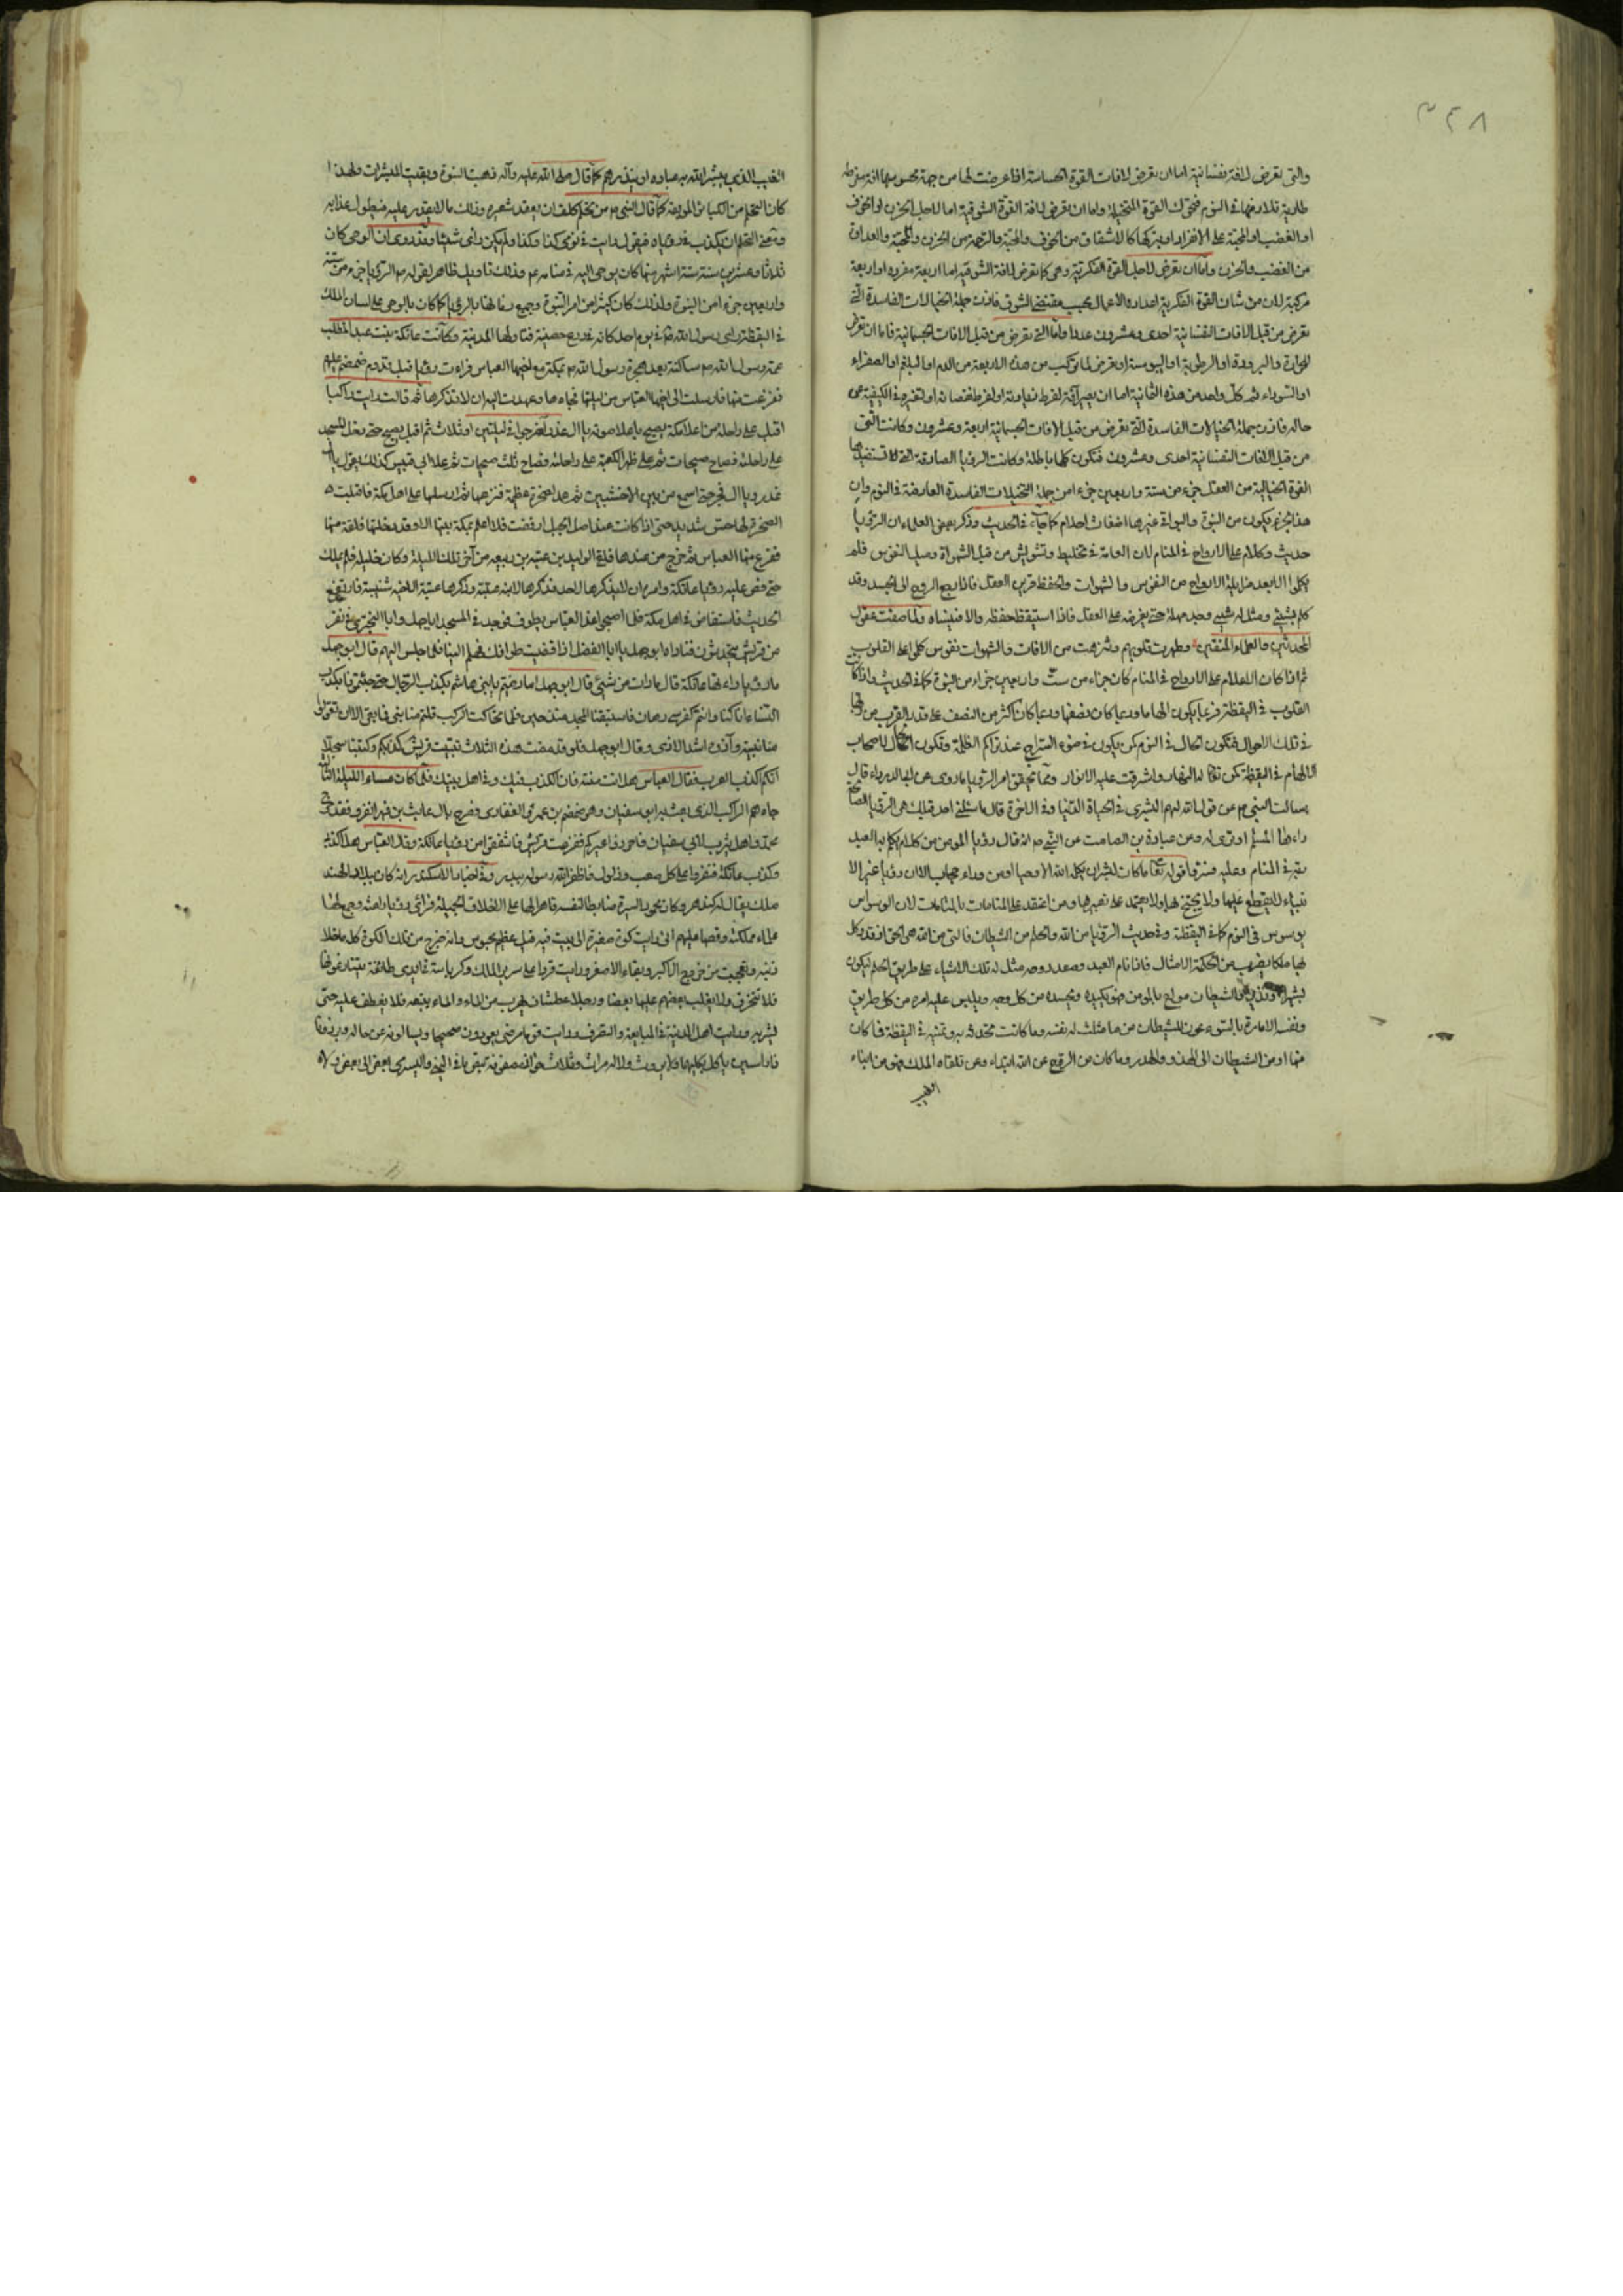 ٣٤٨
والتى تعرض لافة نفسانية اما ان تعرض لافات القوة الحساسة اذا عرضت لها من جهة محسوسها افة مفرطة
طارية فلا رفها فى النوم فتحرك القوة المتخيلة واما ان تعرض لافة القوة الشوقية اما لاجل الحزن او الخوف
او الغضب او المحبة على الافراد او بتركها كالاشفاق من الخوف والمحبة والرحمة من الحزن والمحبة والعداوة
من الغضب والحزن واما ان تعرض لاجل القوة الفكرية وهى كما تعرض لافة الشوقية اما اربعة مفردة او اربعة
مركبة لان من شان القوة الفكرية اعداد والاعمال بحسب مقتضى الشوق فاذن جملة الخيالات الفاسدة التى
تعرض من قبل الافات النفسانية احدى وعشرون عددا واما التى تعرض من قبل الافات الجسمانية فاما ان تعرض
للحرارة والبرودة او الرطوبة او اليبوسة او تعرض لما تركب من هذه الاربعة من الدم او البلغم او الصفراء
او السوداء ثم كل واحد من هذه الثمانية اما ان يصير آفة لفرط زيادته او لفرط نقصانه او لتغيره فى الكيفية عن
حاله فاذن جملة الخيالات الفاسدة التى تعرض من قبل الافات الجسمانية اربعة وعشرون وكانت التى
من قبل الافات النفسانية احدى وعشرون فتكون كلها باطلة وكانت الرؤيا الصادقة التى تستفيدها
القوة الخيالية من العقل جزء من ستة واربعين جزءا من جملة التخيلات الفاسدة العارضة فى النوم وان
هذا الجزء يكون من النبوة والبواقى غيرها اضغاث احلام كما جاء فى الحديث وذكر بعض العلماء ان الرؤيا
حديث وكلام على الارواح فى المنام لان العامة فى تخليط وتشويش من قبل الشهوات وميل النفوس فلم
يكلموا الا بعد مزايلة الارواح من النفوس والشهوات والحفظ قرين العقل فاذا رجع الروح الى الجسد وقد
كلم بشىء ومثل له شىء وجد مهلة حتى يعرضه على العقل فاذا استيقظ حفظه والا فنيساه ولما صفت عقول
المحدثين والعلماء المتقين وطهرت قلوبهم وتنزهت من الافات والشهوات نفوس كلموا على القلوب
ثم اذا كان الاعلام على الارواح فى المنام كان جزاء من ست واربعين جزاء من النبوة كما فى الحديث واذا كان
القلوب فى اليقظة فربما يكون الهاما وربما كان نصفها وربما كان اكثر من النصف على قدر القرب من
فى تلك الاحوال فتكون الحال فى النوم كمن يكون فى ضوء السراج عند تراكم الظلمة وتكون الحال لاصحاب
الالهام فى اليقظة كمن تجلى له النهار واشرقت عليه الانوار ومما تحقق امر الرؤيا ما روى عن ابى الدرداء قال
سالت النبى عن قول الله لهم البشرى فى الحياة الدنيا وفى الاخرة قال ما سئلنى احد قبلك هى الرؤيا الصالحة
راءها المسلم او ترى له وعن عبادة بن الصامت عن النبى انه قال رؤيا المومن من كلام يكلم به العبد
ربه فى المنام وعليه فسر قوله تعالى ما كان لبشر ان يكلمه الله الا وحيا او من وراء حجاب الا ان رؤيا غير الا
نبياء لا يقطع عليها ولا يحتج بها ولا يعتمد على تعبيرها ومن اعتقد على المنامات لان الوسواس
يوسوس فى النوم كما فى اليقظة وفى حديث الرؤيا من الله والحلم من الشيطان فالتى من الله هى الحق اذ قد وكل
لها ملكا يضرب من الحكمة الامثال فاذا نام العبد وصعد روحه مثل له تلك الاشياء على طريق الحلم ليكون
بشيرا ونذيرا والشيطان مولع بالمومن فهو يكيده ويحسده من كل وجه ويلبس عليه امره من كل طريق
ونفسه الامارة بالسوء عون للشيطان من ما مثلث له نفسه وما كانت تحدث به وتمنيه فى اليقظة فما كان
منها او من الشيطان الى الهذو والهدر وما كان من الروح عن الله ابتداء وعن تلقاء الملك فهو من انباء
الغيب
الغيب الذى يبشر الله به عباده او ينذرهم كما قال صلى الله عليه وآله ذهبت النبوة وبقيت المبشرات ولهذا
كان التحلم من الكبائر الموبقة كما قال النبى من تحلم كلف ان يعقد شعيرة وذلك ما لا يقدر عليه فيطول عذابه
ومعنى التحلم ان يكذب فى رؤياه فيقول رايت فى نومى كذا وكذا ولم يكن رأى شيئا وقد روى ان الوحى كان
ثلاثا وعشرين سنة ستة اشهر منها كان يوحى اليه فى منامه وذلك تاويل ظاهر لقوله الرؤيا جزء من ستة
واربعين جزءا من النبوة ولذلك كان كثيرا من امر النبوة وجميع بالرؤيا كما كان بالوحى على لسان الملك
فى اليقظة رأى رسول الله فى يوم احد كانه فى درع حصينة فتاولها المدينة وكانت عاتكة بنت عبد المطلب
عمة رسول الله ساكنة بعد هجرة رسول الله بمكة مع اخيها العباس فراءت رؤيا قبل قدوم ضمضم عليهم
ففزعت منها فارسلت الى اخيها العباس من ليلتها فجاءها وعهدت اليه ان لا تذكرها ثم قالت رايت راكبا
اقبل على راحلة من اعلا مكة يصيح باعلا صوته يا آل غدر اخرجوا فى ليلتين او ثلاث ثم اقبل يصيح حتى دخل المسجد
على راحلته فصاح صيحات ثم على ظهر الكعبة على راحلته فصاح ثلث صيحات ثم على ابى قبيس كذلك يقول يا آل
غدر ويا آل فجر حتى اسمع من بين الاخشبين ثم عمد لصخرة عظيمة فنزعها ثم ارسلها على اهل مكة فاقبلت
الصخرة لها حس شديد حتى اذا كانت عند اصل الجبل ارفضت فلا اعلم بمكة بيتا الا وقد دخلتها فلقة منها
ففزع منها العباس ثم خرج من عندها فلقى الوليد بن عتبة بن ربيعة من آخر تلك الليلة وكان خليله فلم يملك
حتى قص عليه رؤيا عاتكة وامره ان لا يذكرها لاحد فذكرها لابيه عتبة وذكرها عتبة لاخيه شيبة فارتفع
الحديث فاستفاض فى اهل مكة فلما اصبح غدا العباس يطوف فوجد فى المسجد ابا جهل وابا البخترى فى نفر
من قريش يتحدثون فناداه ابو جهل يا ابا الفضل اذا قضيت طوافك فهلم الينا فلما جلس اليهم قال ابو جهل
ما رؤيا راءتها عاتكة قال ما رات من شىء قال ابو جهل اما رضيتم يا بنى هاشم بكذب الرجال حتى جئتمونا بكذب
النساء انا كنا وانتم كفرسى رهان فاستبقنا المجد منذ حين فلما تحاكت الركب قلتم منا نبى فما بقى الا ان تقولوا
منا نبية وآذوه اشد الاذى وقال ابو جهل فلو قد مضت هذه الثلاث تبينت قريش كذبكم وكتبنا سجلا
انكم اكذب العرب فقال العباس هل انت منته فان الكذب فيك وفى اهل بيتك فلما كان مساء الليلة الثالثة
جاءهم الراكب الذى بعثه ابو سفيان وهو ضمضم بن عمرو الغفارى وصرح يا آل غالب بن فهر انفروا فقد خرج
محمد واهل يثرب الى ابى سفيان فاحرزوا عيركم ففزعت قريش واشفقوا من رؤيا عاتكة وقال العباس هذا كذبى
وكذب عاتكة فنفروا على كل صعب وذلول فاظفر الله رسوله ببدر وفى اخبار الاسكندر انه كان ببلاد الهند
ملك يقال له كيد هو وكان محمود السيرة ضابطا لنفسه قاهرا لها على الاخلاق الجميلة فرأى رؤيا راعته وجمع لها
علماء مملكته وقصها عليهم انى رايت كوة صغيرة الى بيت فيه فيل عظيم محبوس وانه خرج من تلك الكوة كله ما خلا
ذنبه وتعجبت من خروج الاكبر وبقاء الاصغر ورايت قردا على سرير الملك وكرباسة فى ايدى طائفة يتنازعونها
فلا تنخرق ولا يغلب بعضهم عليها بعضا ورجلا عطشان يهرب من الماء والماء يتبعه فلا يعطف عليه حتى
يشربه ورايت اهل المدينة فى المبايعة والتصرف ورايت قوما مرضى يعودون صحيحا ويسالونه عن حاله وبرذونا
ذا راسين ياكل بكليهما ولا يروث ولا له مراث وثلاث خوابى مصفوفة تبقى ملأى اليمنى واليسرى بعض الى بعض ولا